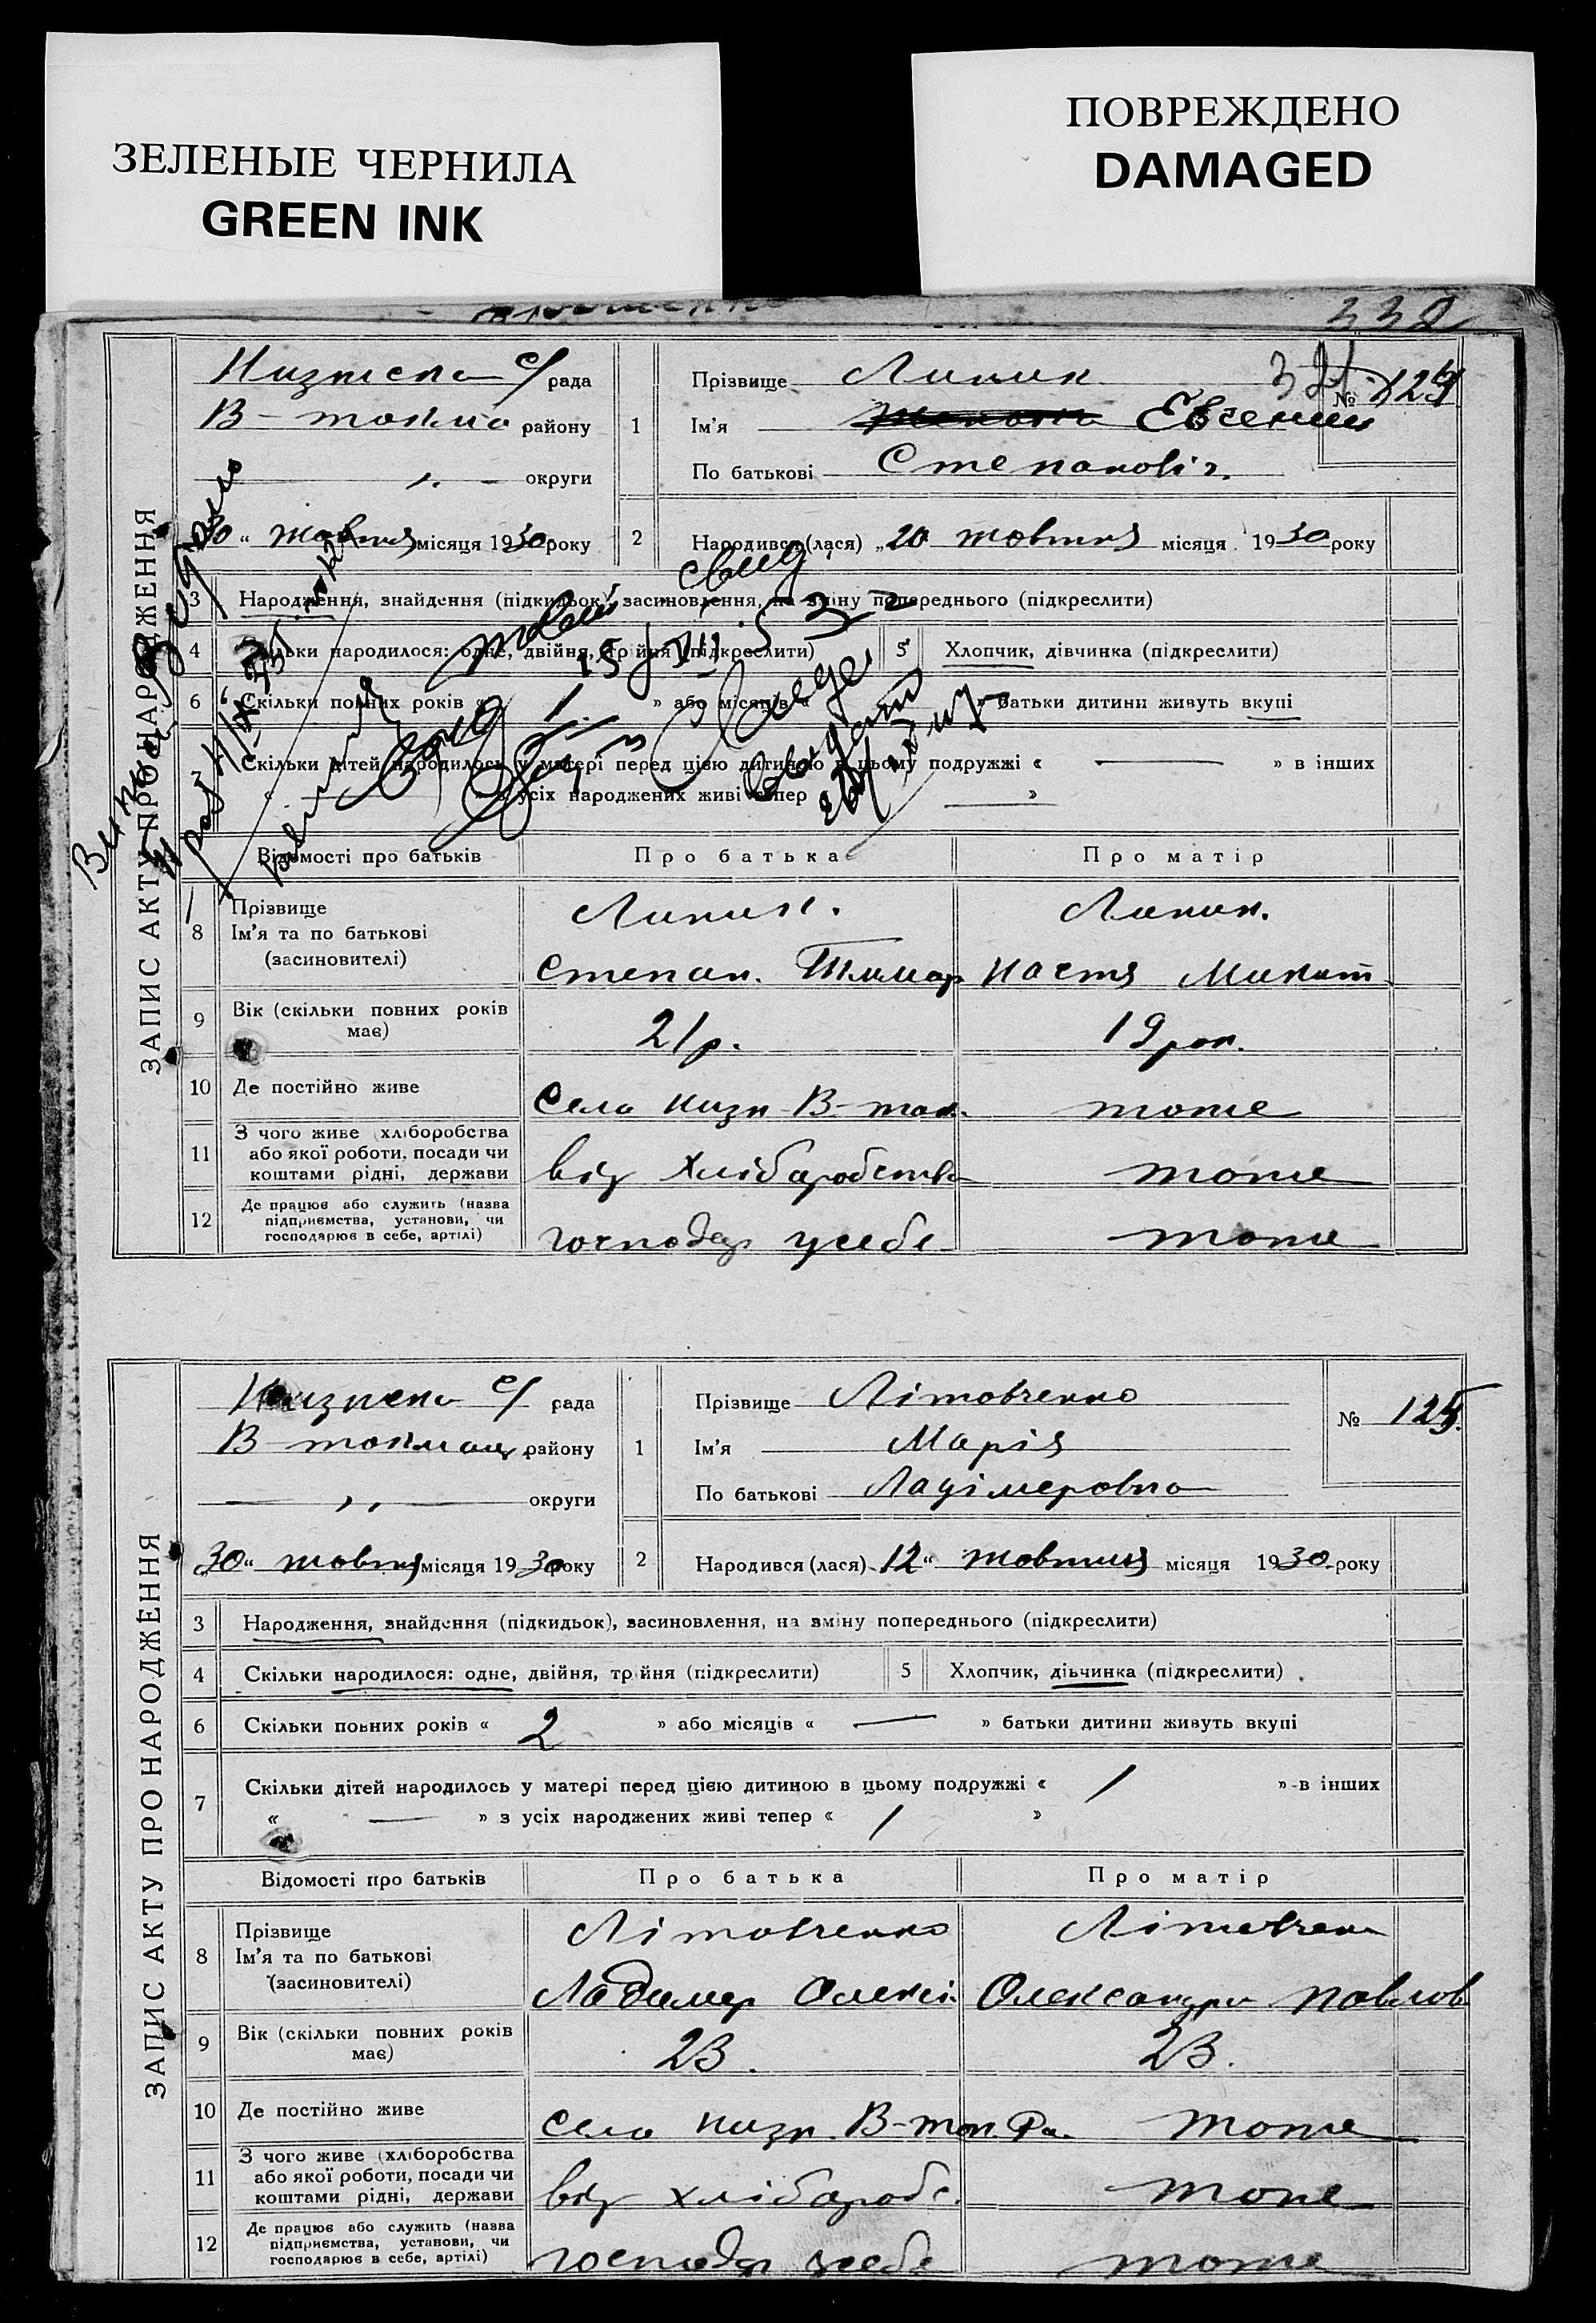 ЗЕЛЕНЫЕ ЧЕРНИЛА
GREEN INK
ПОВРЕЖДЕНО
DAMAGED
332
ЗАПИС АКТУ ПРО НАРОДЖЕННЯ
с/ рада
В-токмо району
" округи
30 “ жовтня місяця 1930 року
№ 124
1 Прізвище Липик
Ім'я Евгений
По батькові Степановіч.
2 Народився (лася) „20 жовтня місяця 1930 року
3 Народження, знайдення (підкидьок), засиновлення, на зміну попереднього (підкреслити)
4 Скільки народилося: одне, двійня, трійня (підкреслити) 5 Хлопчик, дівчинка (підкреслити)
6 Скільки повних років « 1 » або місяців « » батьки дитини живуть вкупі
7 Скільки дітей народилось у матері перед цією дитиною в цьому подружжі « — » в інших
« » з усіх народжених живі тепер — »
Відомості про батьків Про батька Про матір
8 Прізвище Липик. Липик.
Ім'я та по батькові
(засиновителі) Степан. Настя Микит
9 Вік (скільки повних років має) 21 р. 19 рок.
10 Де постійно живе Село низк В-ток. тоже
11 З чого живе (хліборобства
або якої роботи, посади чи
коштами рідні, держави від хліборобства тоже
12 Де працює або служить (назва
підприємства, установи, чи
господарює в себе, артілі) господар усебе тоже
ЗАПИС АКТУ ПРО НАРОДЖЕННЯ
с/ рада
В-токмац району
" округи
30 “ жовтня місяця 1930 року
№ 125.
1 Прізвище Літовченко
Ім'я Марія
По батькові Ладімеровна
2 Народився (лася) 12 “ жовтня місяця 1930 року
3 Народження, знайдення (підкидьок), засиновлення, на зміну попереднього (підкреслити)
4 Скільки народилося: одне, двійня, трійня (підкреслити) 5 Хлопчик, дівчинка (підкреслити)
6 Скільки повних років « 2 » або місяців « — » батьки дитини живуть вкупі
7 Скільки дітей народилось у матері перед цією дитиною в цьому подружжі « 1 » в інших
« — » з усіх народжених живі тепер « 1 »
Відомості про батьків Про батька Про матір
8 Прізвище Літовченко Літовченко
Ім'я та по батькові
(засиновителі) Ладимер Олексі. Олександра Павлов
9 Вік (скільки повних років має) 23. 23.
10 Де постійно живе Село низк. В-ток. Ра. тоже
11 З чого живе (хліборобства
або якої роботи, посади чи
коштами рідні, держави від хлібороб. тоже
12 Де працює або служить (назва
підприємства, установи, чи
господарює в себе, артілі) господар усебе тоже